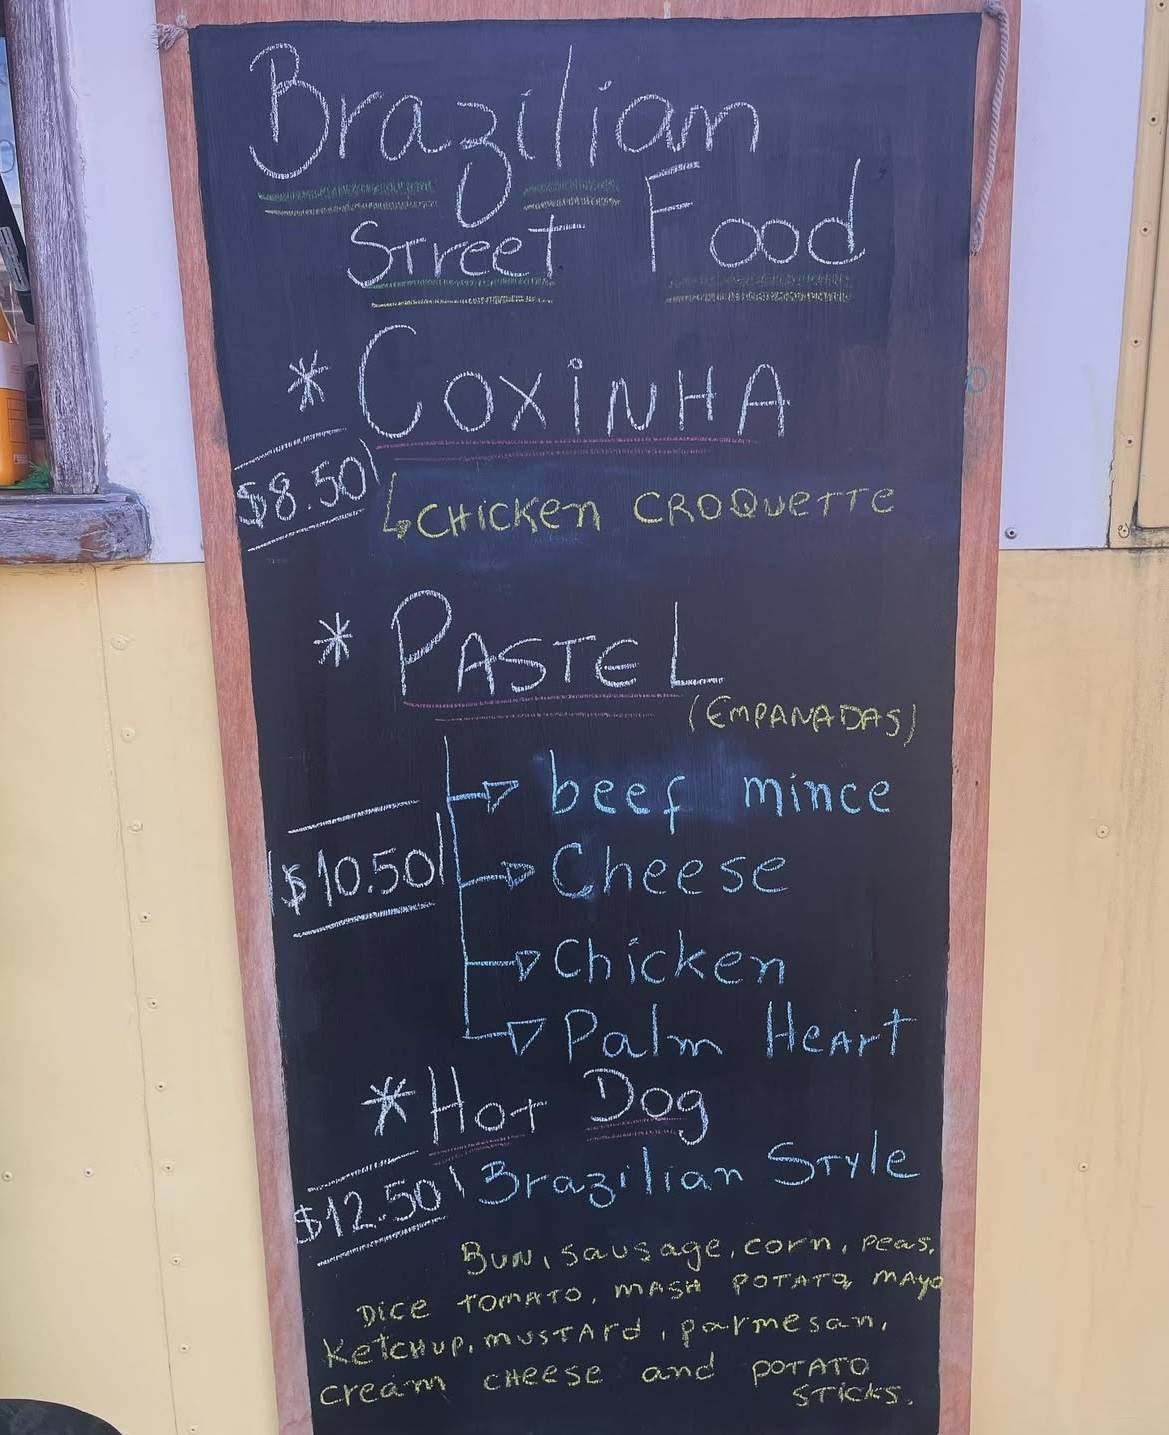 Brazilian
Street Food
* COXiNHA
$8.50
CHicken CROQueTTe
* PASTEL
(EMPANADAS)
beef mince
$10.50
Cheese
Chicken
Palm HeArt
* Hot Dog
Brazilian Style
$12.50
Bun, sausage, corn, peas,
Dice tomato, mash potato, mayo
Ketchup, mustard, parmesan,
cream cheese and potato
sticks.